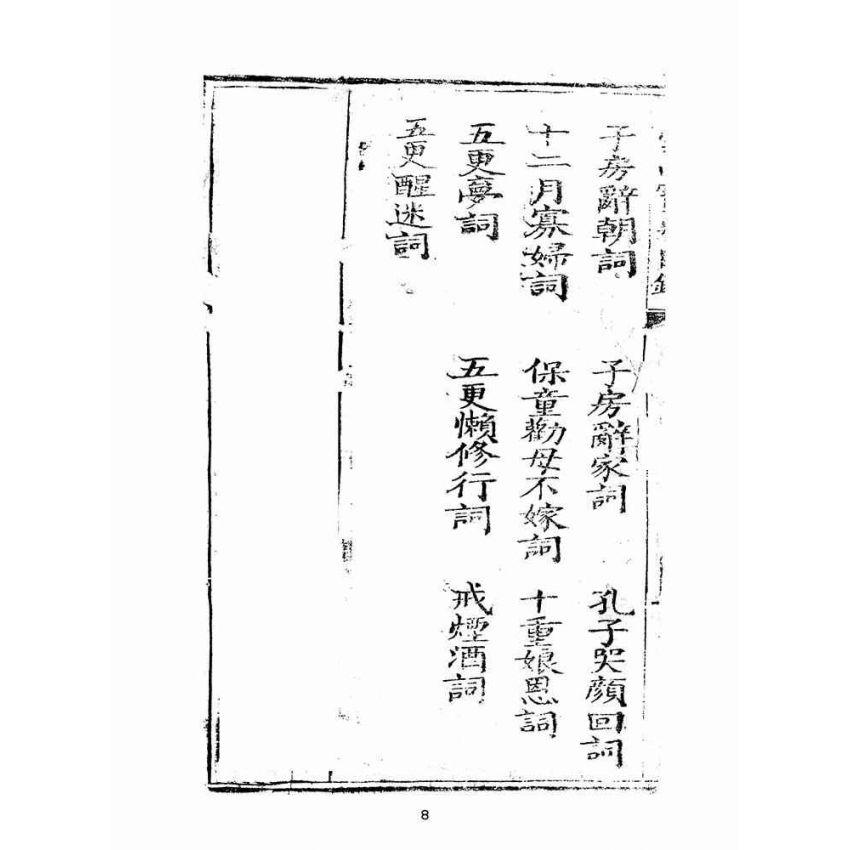 子房辭朝詞
子房辭家詞
孔子哭顏回詞
十二月寡婦詞
保童勸母不嫁詞
十重娘恩詞
五更夢詞
五更懶修行詞
戒煙酒詞
五更醒迷詞
8